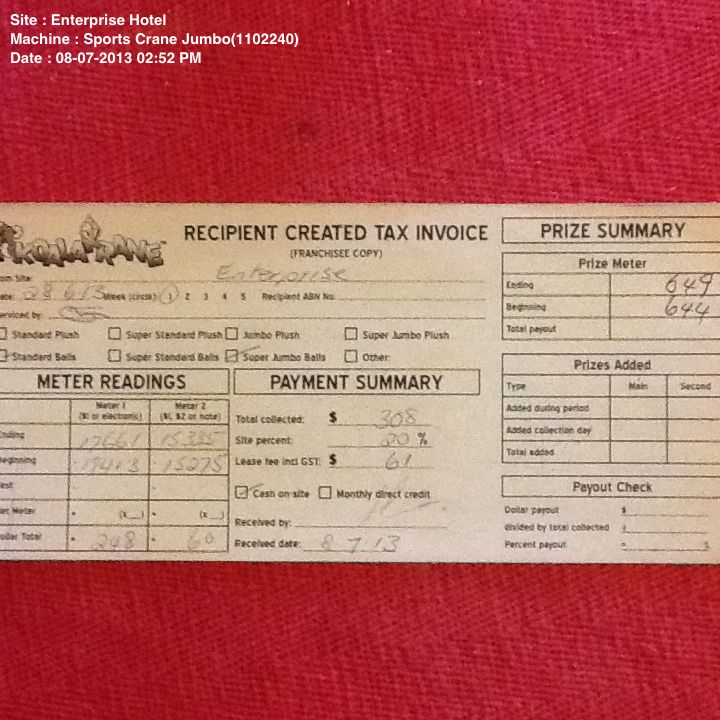 Site : Enterprise Hotel
Machine : Sports Crane Jumbo(1102240)
Date : 08-07-2013 02:52 PM
KOALA KRANE™
RECIPIENT CREATED TAX INVOICE
(FRANCHISEE COPY)
om Site: Enterprise
ate: 28 6 13 Week (circle) 1 2 3 4 5 Recipient ABN No.
erviced by:
Standard Plush Super Standard Plush Jumbo Plush Super Jumbo Plush
Standard Balls Super Standard Balls Super Jumbo Balls Other:
METER READINGS
Meter 1 ($1 or electronic) Meter 2 ($1, $2 or note)
nding 17661 15335
eginning 17413 15275
est
et Meter (x__) (x__)
ollar Total 248 60
PAYMENT SUMMARY
Total collected: $ 308
Site percent: 20 %
Lease fee incl GST: $ 61
Cash on site Monthly direct credit
Received by:
Received date: 8 7 13
PRIZE SUMMARY
Prize Meter
Ending 649
Beginning 644
Total payout
Prizes Added
Type Main Second
Added during period
Added collection day
Total added
Payout Check
Dollar payout $
divided by total collected ÷
Percent payout = %